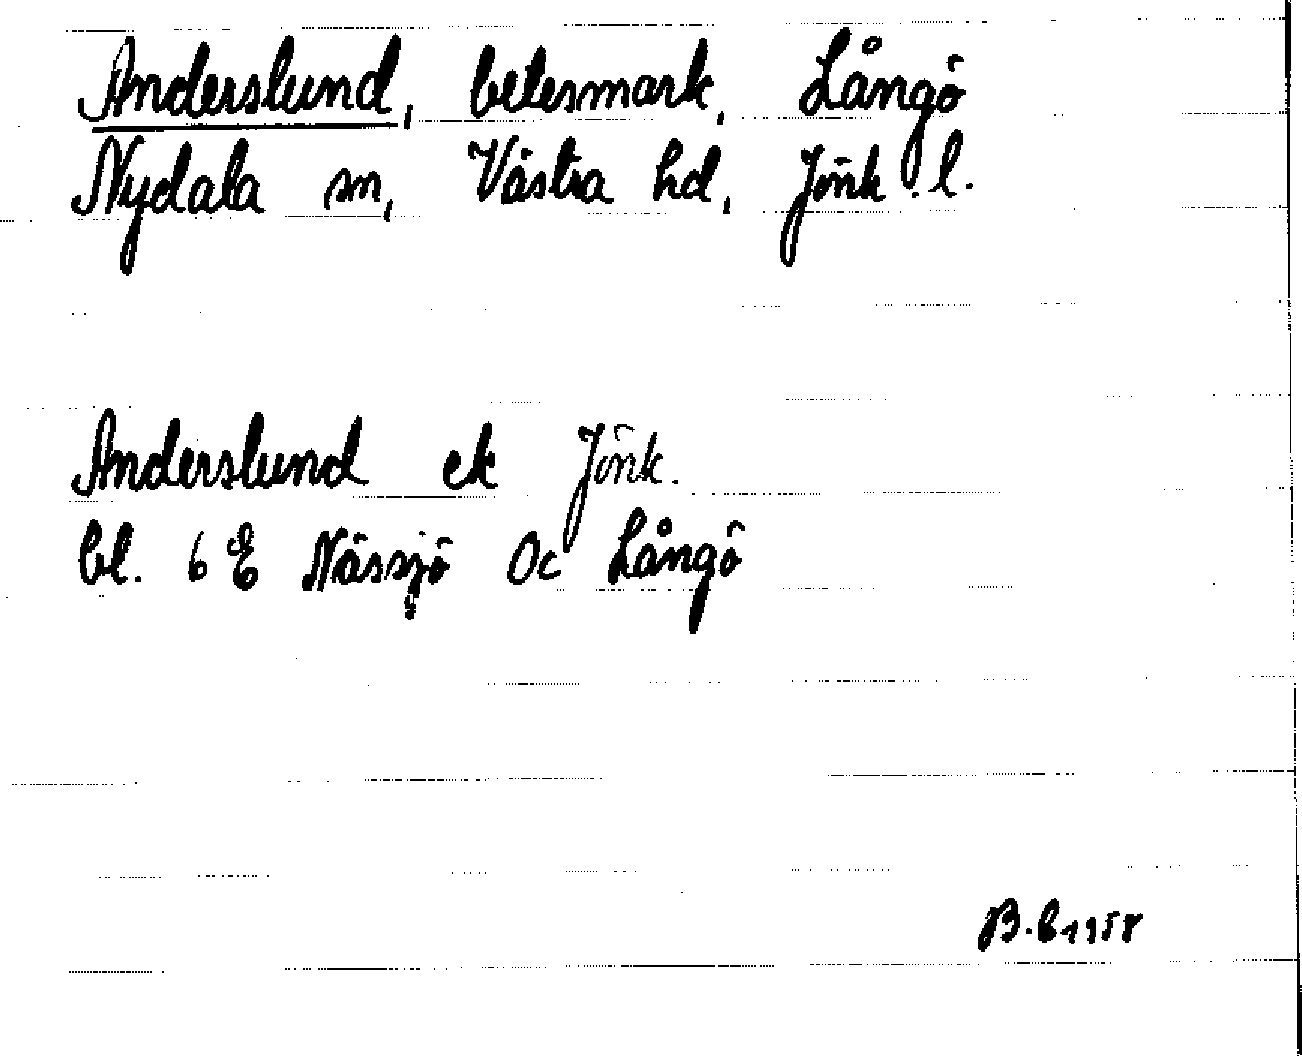 Anderslund, betesmark, Långö
Nydala sn, Västra hd, Jönk. l.
Anderslund ek Jönk.
bl. 6 E Nässjö 0c Långö
B.E 1958